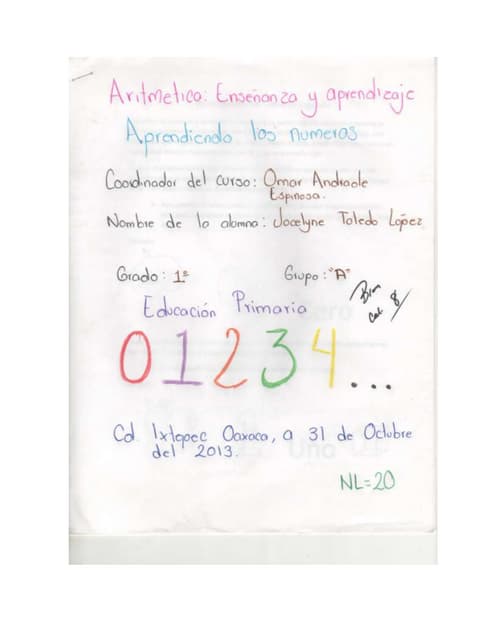 Aritmetica: Enseñanza y aprendizaje
Aprendiendo los numeros
Coordinador del curso: Omar Andrade
Espinosa.
Nombre de la alumna: Jocelyne Toledo López
Grado: 1º Grupo: "A"
Educación Primaria
Bien
Cal 8
0 1 2 3 4 ...
Cd Ixtepec Oaxaca, a 31 de Octubre
del 2013.
NL=20